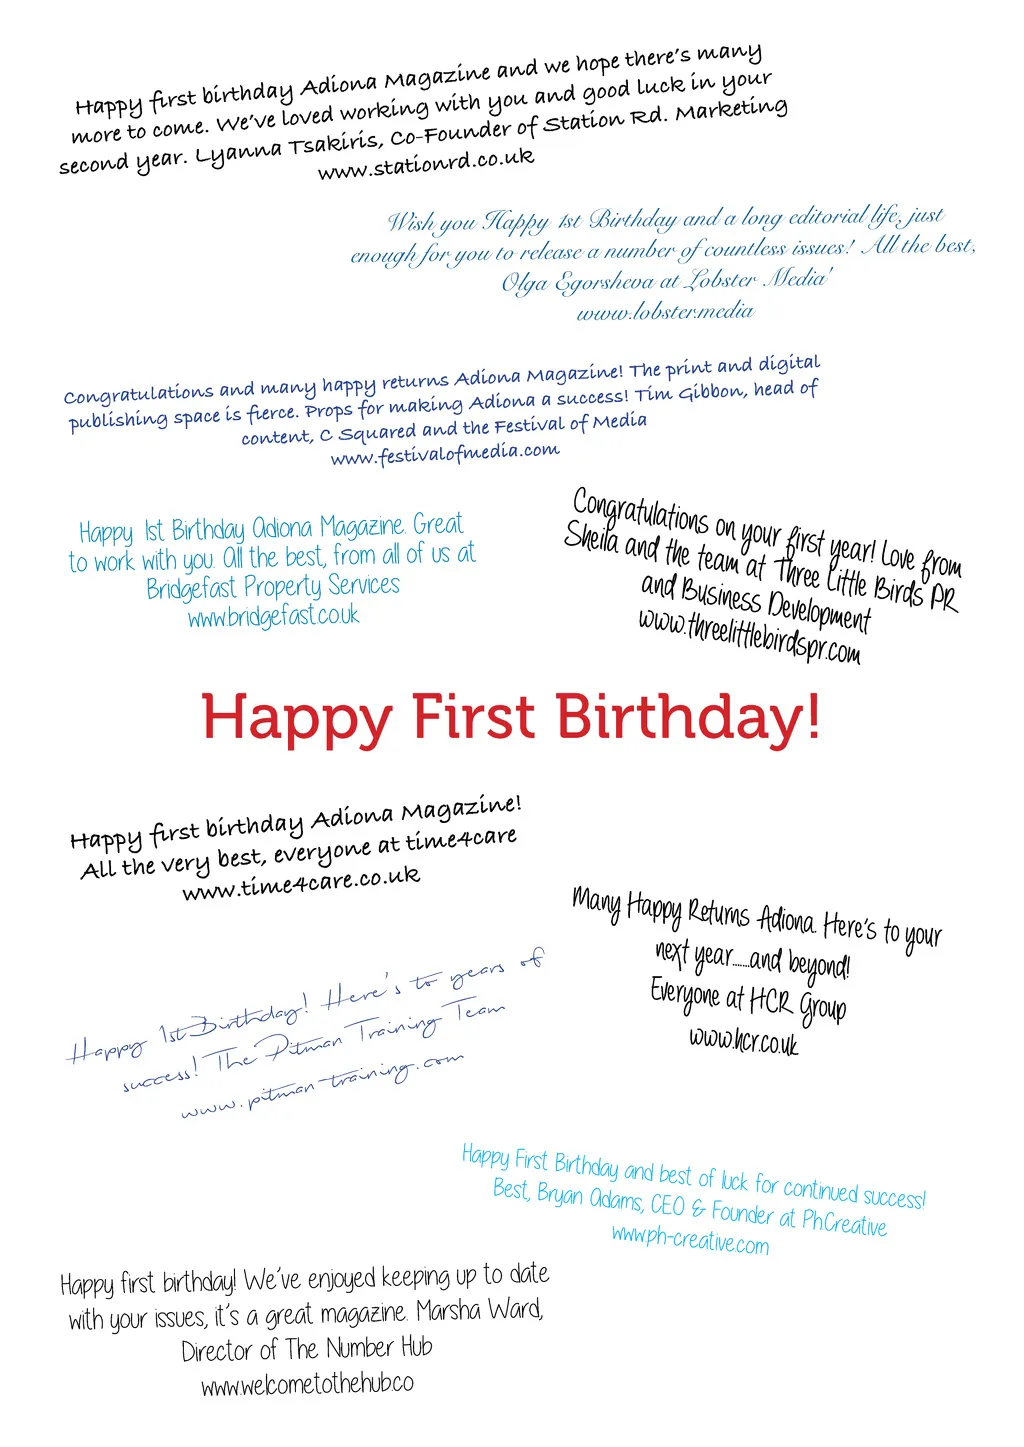 Happy first birthday Adiona Magazine and we hope there's many
more to come. We've loved working with you and good luck in your
second year. Lyanna Tsakiris, Co-Founder of Station Rd. Marketing
www.stationrd.co.uk
Wish you Happy 1st Birthday and a long editorial life, just
enough for you to release a number of countless issues! All the best,
Olga Egorsheva at Lobster Media'
www.lobster.media
Congratulations and many happy returns Adiona Magazine! The print and digital
publishing space is fierce. Props for making Adiona a success! Tim Gibbon, head of
content, C Squared and the Festival of Media
www.festivalofmedia.com
Happy 1st Birthday Adiona Magazine. Great
to work with you. All the best, from all of us at
Bridgefast Property Services
www.bridgefast.co.uk
Congratulations on your first year! Love from
Sheila and the team at Three Little Birds PR
and Business Development
www.threelittlebirdspr.com
Happy First Birthday!
Happy first birthday Adiona Magazine!
All the very best, everyone at time4care
www.time4care.co.uk
Many Happy Returns Adiona. Here's to your
next year......and beyond!
Everyone at HCR Group
www.hcr.co.uk
Happy 1st Birthday! Here's to years of
success! The Pitman Training Team
www.pitman-training.com
Happy First Birthday and best of luck for continued success!
Best, Bryan Adams, CEO & Founder at PhCreative
www.ph-creative.com
Happy first birthday! We've enjoyed keeping up to date
with your issues, it's a great magazine. Marsha Ward,
Director of The Number Hub
www.welcometothehub.co